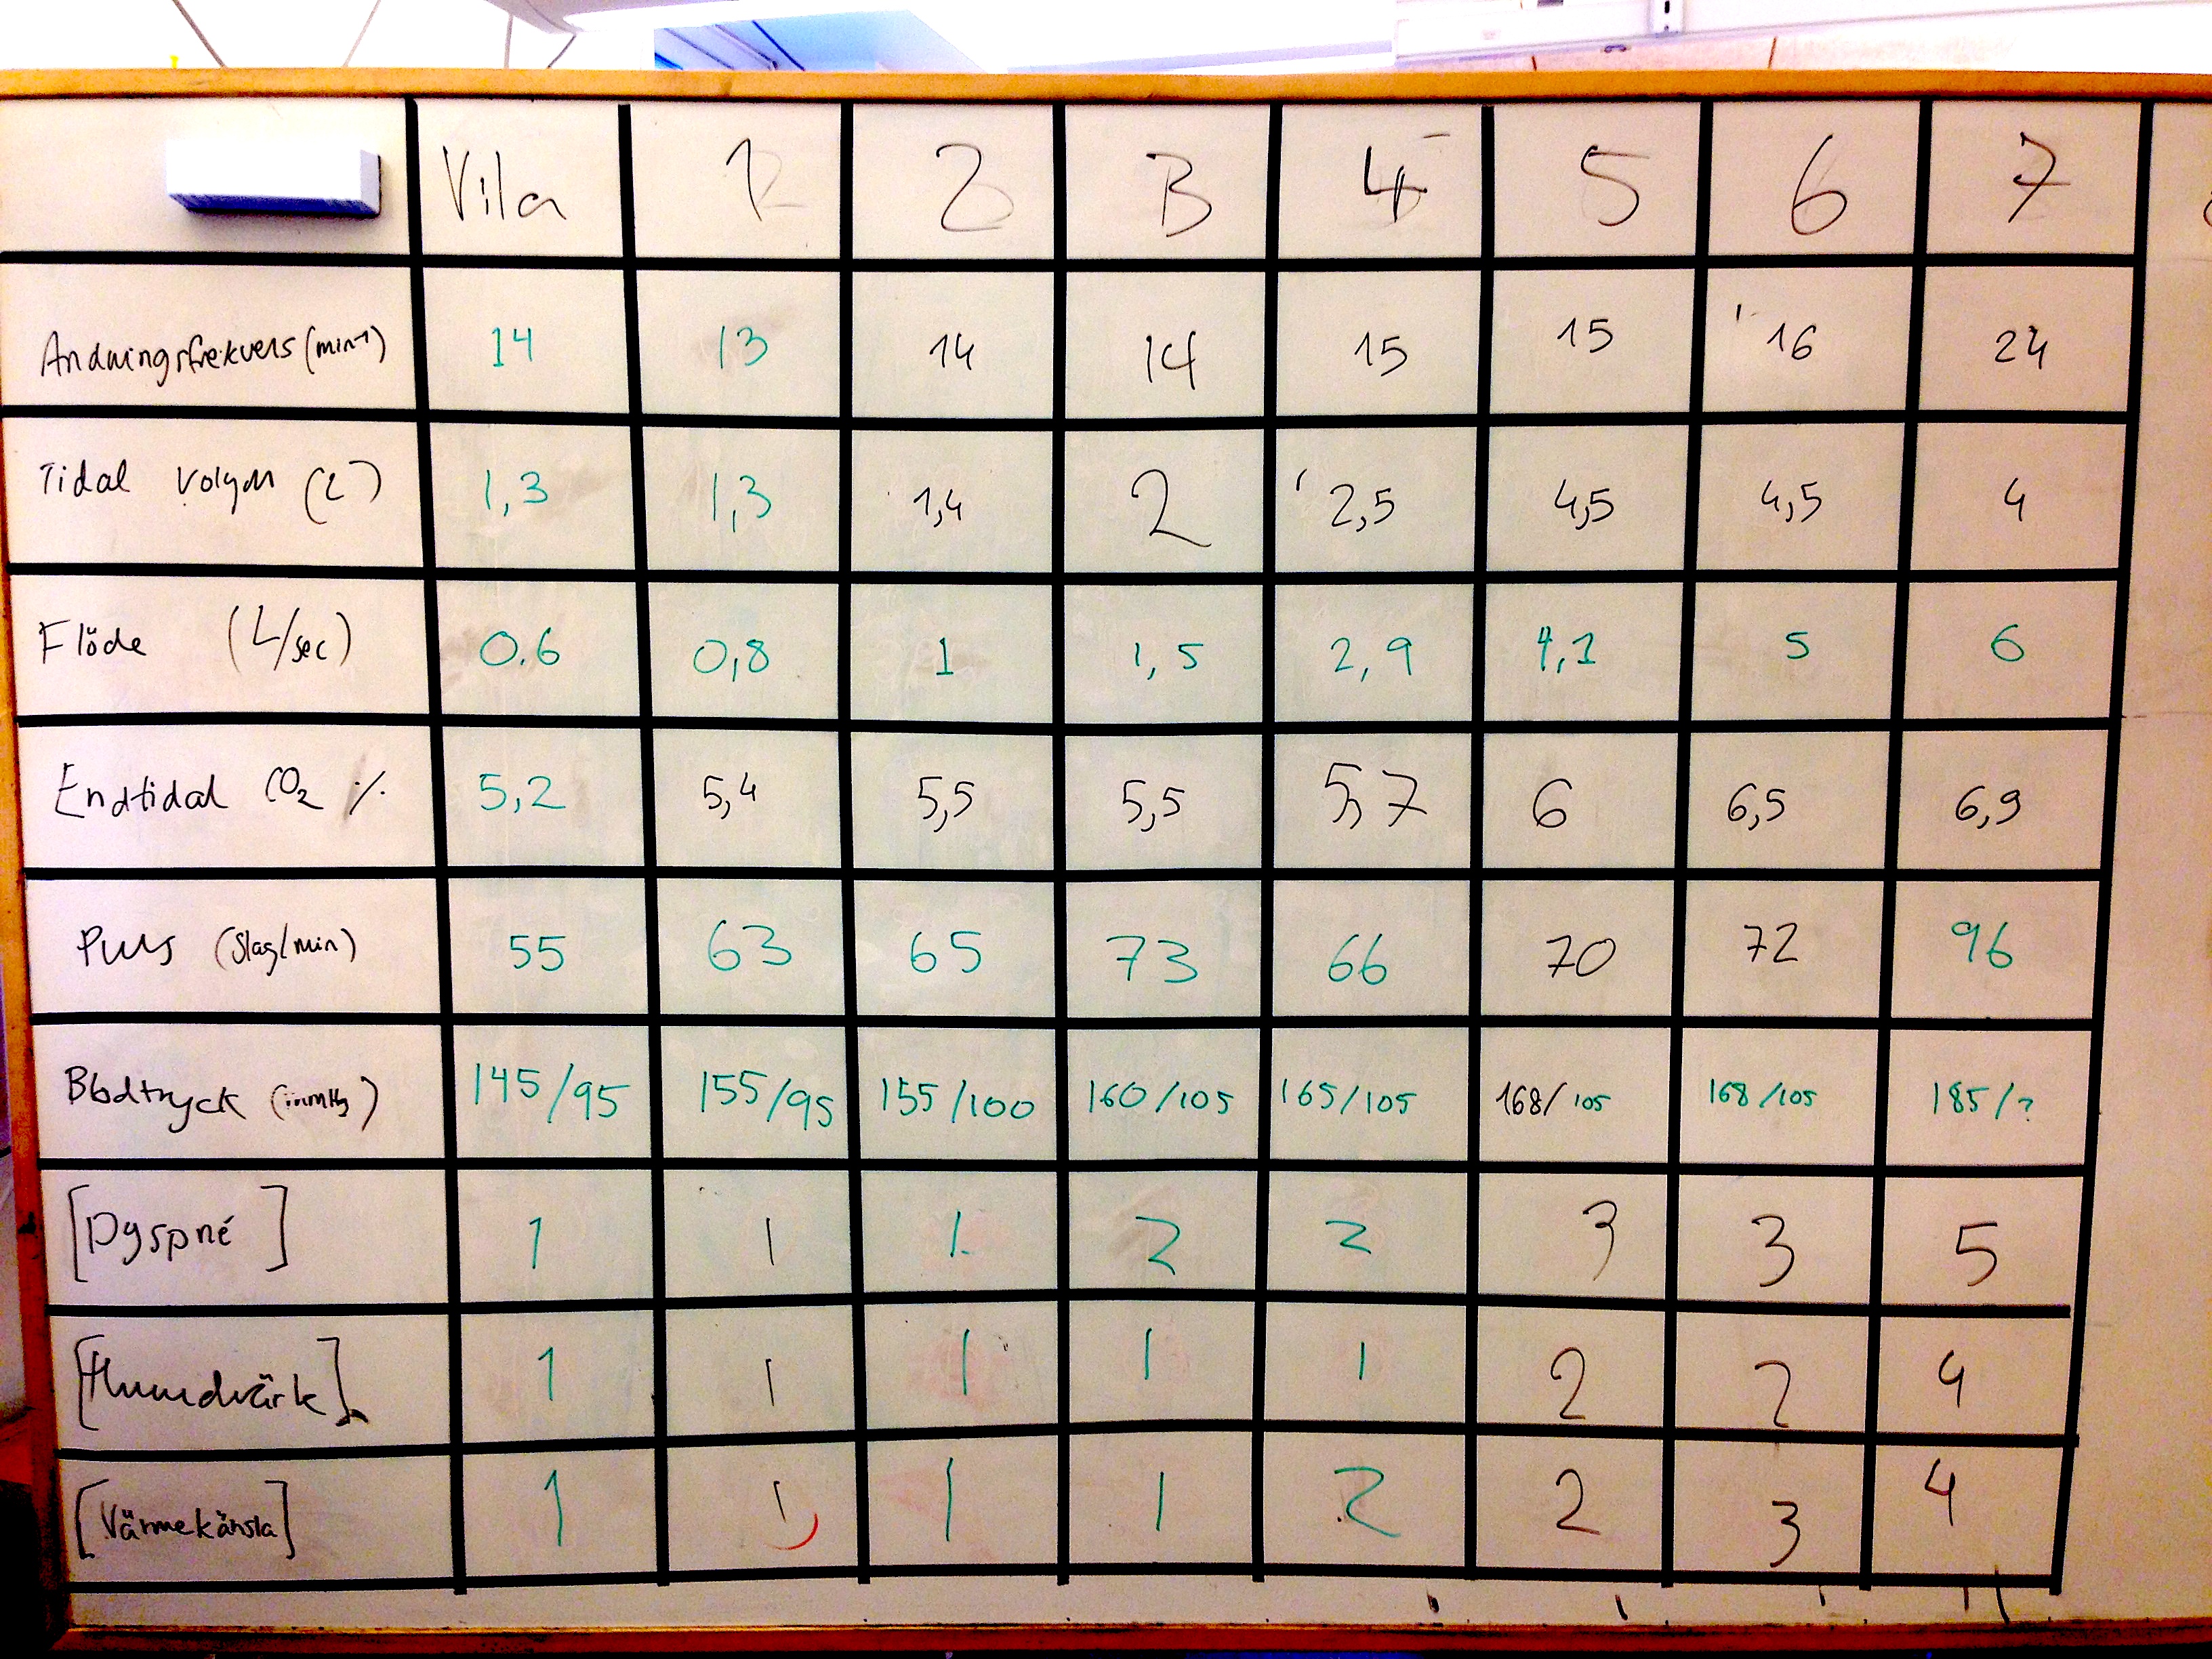 Vila 1 2 3 4 5 6 7
Andningsfrekvens (min-1) 14 13 14 14 15 15 16 24
Tidal volym (L) 1,3 1,3 1,4 2 2,5 4,5 4,5 4
Flöde (L/sec) 0.6 0,8 1 1,5 2,9 4,1 5 6
Endtidal CO2 % 5,2 5,4 5,5 5,5 5,7 6 6,5 6,9
Puls (Slag/min) 55 63 65 73 66 70 72 96
Blodtryck (mmHg) 145/95 155/95 155/100 160/105 165/105 168/105 168/105 185/?
[Dyspné] 1 1 1 2 2 3 3 5
[Huvudvärk] 1 1 1 1 1 2 2 4
[Värmekänsla] 1 1 1 1 2 2 3 4